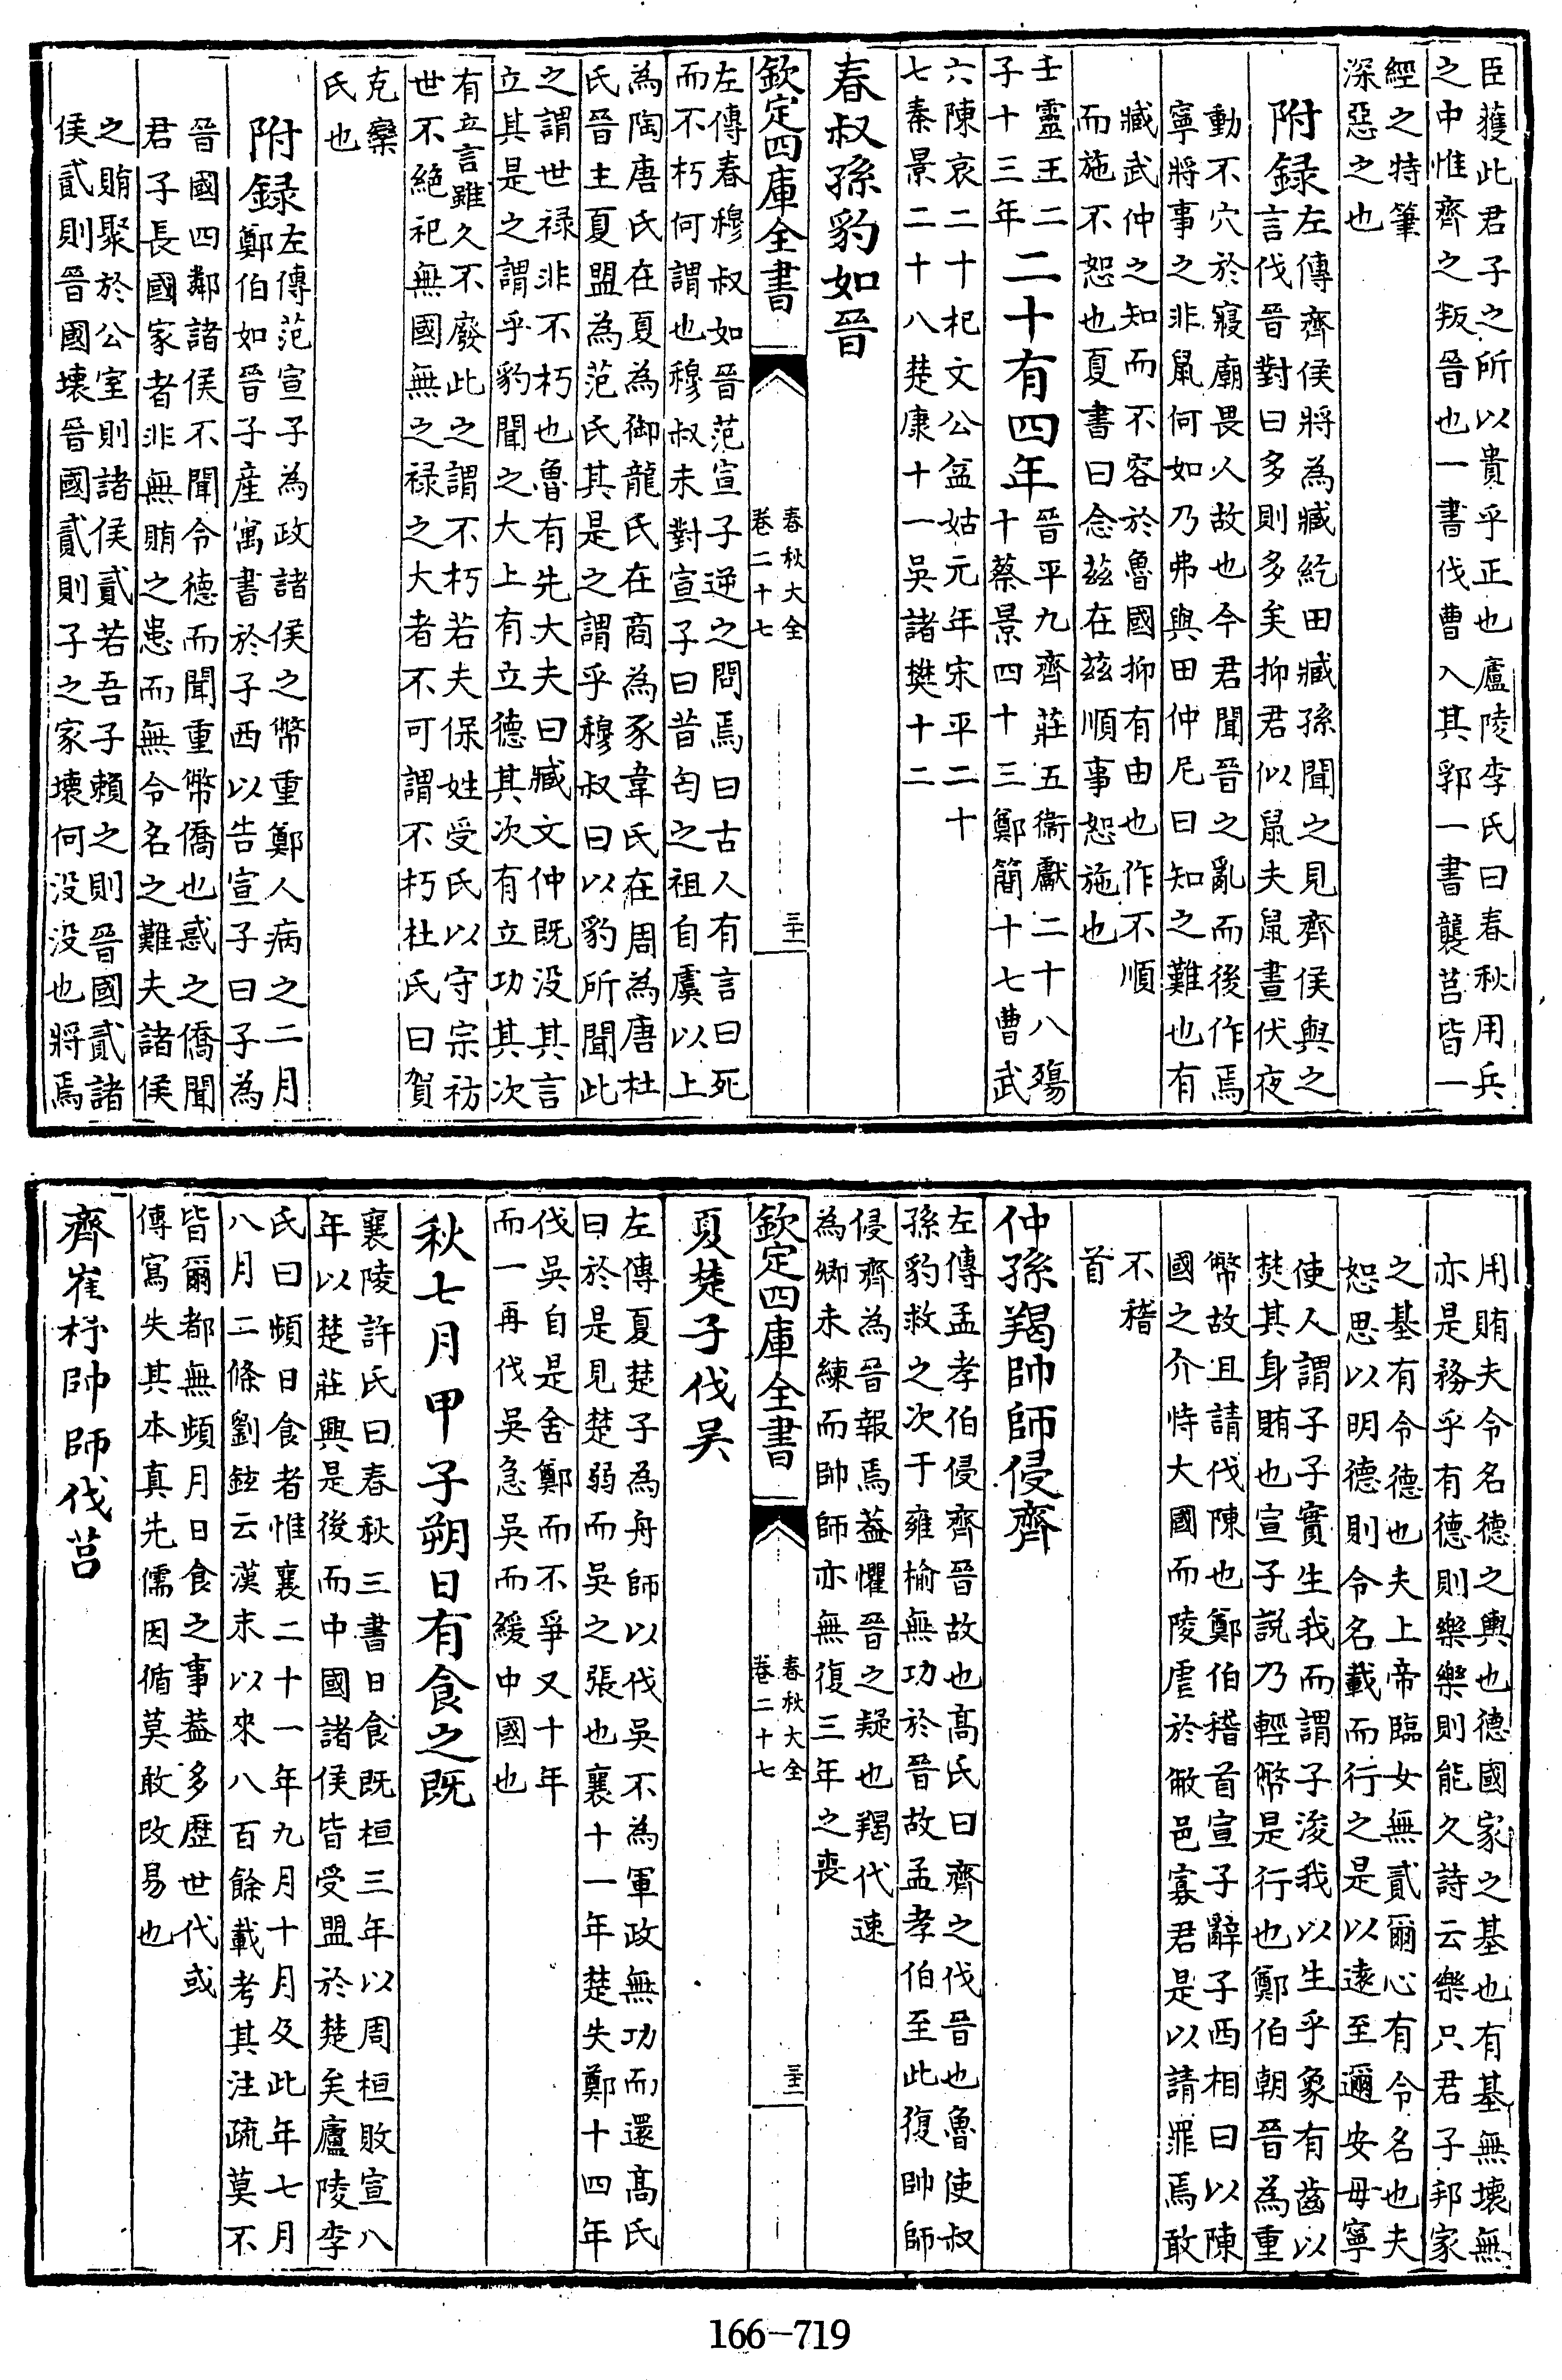 臣獲此君子之所以貴乎正也廬陵李氏曰春秋用兵
之中惟齊之叛晉也一書伐曹入其郛一書襲莒皆一
經之特筆
深惡之也
附録
左傳齊侯將為臧紇田臧孫聞之見齊侯與之
言伐晉對曰多則多矣抑君似鼠夫鼠晝伏夜
動不穴於寢廟畏人故也今君聞晉之亂而後作焉
寧將事之非鼠何如乃弗與田仲尼曰知之難也有
臧武仲之知而不容於魯國抑有由也作不順
而施不恕也夏書曰念兹在兹順事恕施也
壬靈王二
子十三年
二十有四年
晉平九齊莊五衞獻二十八殤
十蔡景四十三鄭簡十七曹武
六陳哀二十杞文公益姑元年宋平二十
七秦景二十八楚康十一吳諸樊十二
春叔孫豹如晉
欽定四庫全書
春秋大全
卷二十七
三十一
左傳春穆叔如晉范宣子逆之問焉曰古人有言曰死
而不朽何謂也穆叔未對宣子曰昔匄之祖自虞以上
為陶唐氏在夏為御龍氏在商為豕韋氏在周為唐杜
氏晉主夏盟為范氏其是之謂乎穆叔曰以豹所聞此
之謂世禄非不朽也魯有先大夫曰臧文仲既没其言
立其是之謂乎豹聞之大上有立德其次有立功其次
有立言雖久不廢此之謂不朽若夫保姓受氏以守宗祊
世不絶祀無國無之禄之大者不可謂不朽杜氏曰賀
克欒
氏也
附録
左傳范宣子為政諸侯之幣重鄭人病之二月
鄭伯如晉子産寓書於子西以告宣子曰子為
晉國四鄰諸侯不聞令德而聞重幣僑也惑之僑聞
君子長國家者非無賄之患而無令名之難夫諸侯
之賄聚於公室則諸侯貳若吾子賴之則晉國貳諸
侯貳則晉國壊晉國貳則子之家壊何没没也將焉
用賄夫令名德之輿也德國家之基也有基無壊無
亦是務乎有德則樂樂則能久詩云樂只君子邦家
之基有令德也夫上帝臨女無貳爾心有令名也夫
恕思以明德則令名載而行之是以遠至邇安毋寧
使人謂子子實生我而謂子浚我以生乎象有齒以
焚其身賄也宣子説乃輕幣是行也鄭伯朝晉為重
幣故且請伐陳也鄭伯稽首宣子辭子西相曰以陳
國之介恃大國而陵虐於敝邑寡君是以請罪焉敢
不稽
首
仲孫羯帥師侵齊
左傳孟孝伯侵齊晉故也髙氏曰齊之伐晉也魯使叔
孫豹救之次于雍榆無功於晉故孟孝伯至此復帥師
侵齊為晉報焉葢懼晉之疑也羯代速
為卿未練而帥師亦無復三年之喪
欽定四庫全書
春秋大全
卷二十七
三十二
夏楚子伐吳
左傳夏楚子為舟師以伐吳不為軍政無功而還髙氏
曰於是見楚弱而吳之張也襄十一年楚失鄭十四年
伐吳自是舍鄭而不爭又十年
而一再伐吳急吳而緩中國也
秋七月甲子朔日有食之既
襄陵許氏曰春秋三書日食既桓三年以周桓敗宣八
年以楚莊興是後而中國諸侯皆受盟於楚矣廬陵李
氏曰頻日食者惟襄二十一年九月十月及此年七月
八月二條劉鉉云漢末以來八百餘載考其注疏莫不
皆爾都無頻月日食之事葢多歴世代或
傳寫失其本真先儒因循莫敢改易也
齊崔杼帥師伐莒
166-719